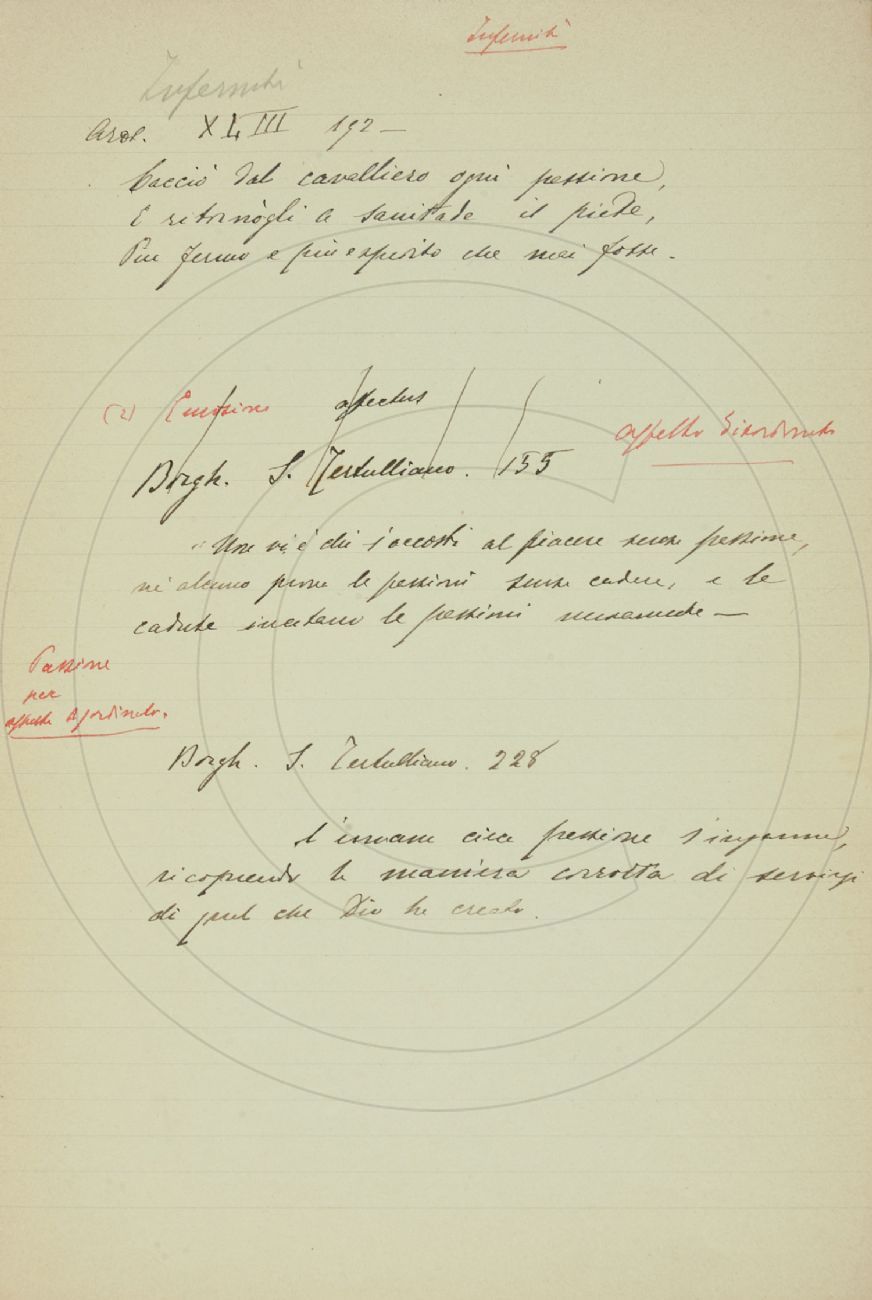 Infermità
Infermità
Arol. XLIII 192 —
Cacciò dal cavalliero ogni passione,
E ritornògli a sanitade il piede,
Piu fermo e più espedito che mai fosse.
(2) Emozione affectus
affetto disordinato
Borgh. S. Tertulliano. 155
"Non vi è chi s'accosti al piacere senza passione,
nè alcuno prova le passioni senza cadere, e le
cadute incitano le passioni
Passione
per
affetto disordinato.
Borgh. S. Tertulliano. 228
L'umana cieca passione s'inganna,
ricoprendo la maniera corrotta di servirsi
di quel che Dio ha creato.